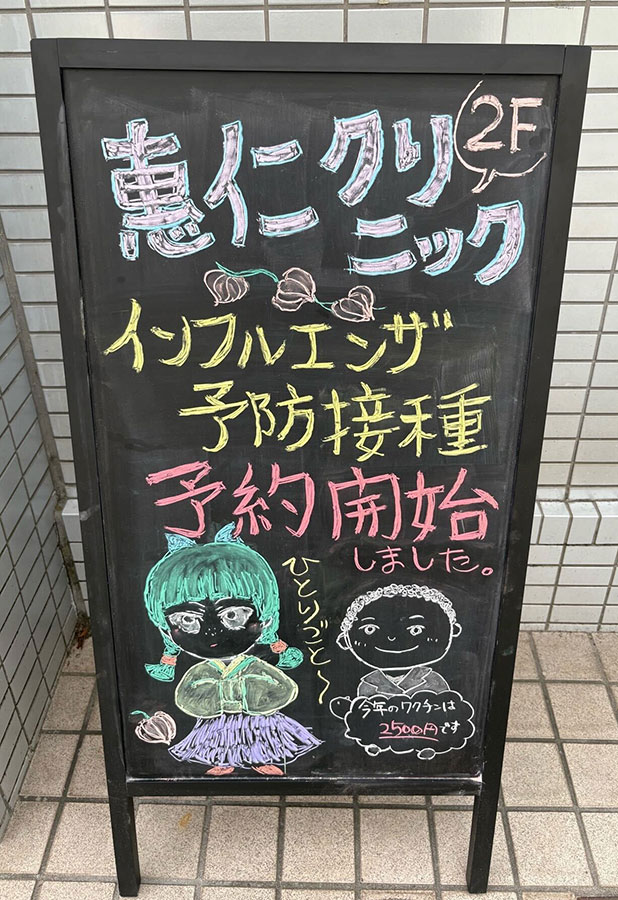 恵仁クリ
2F
ニック
インフルエンザ
予防接種
予約開始
しました。
ひとりごと〜
今年のワクチンは
2500円です